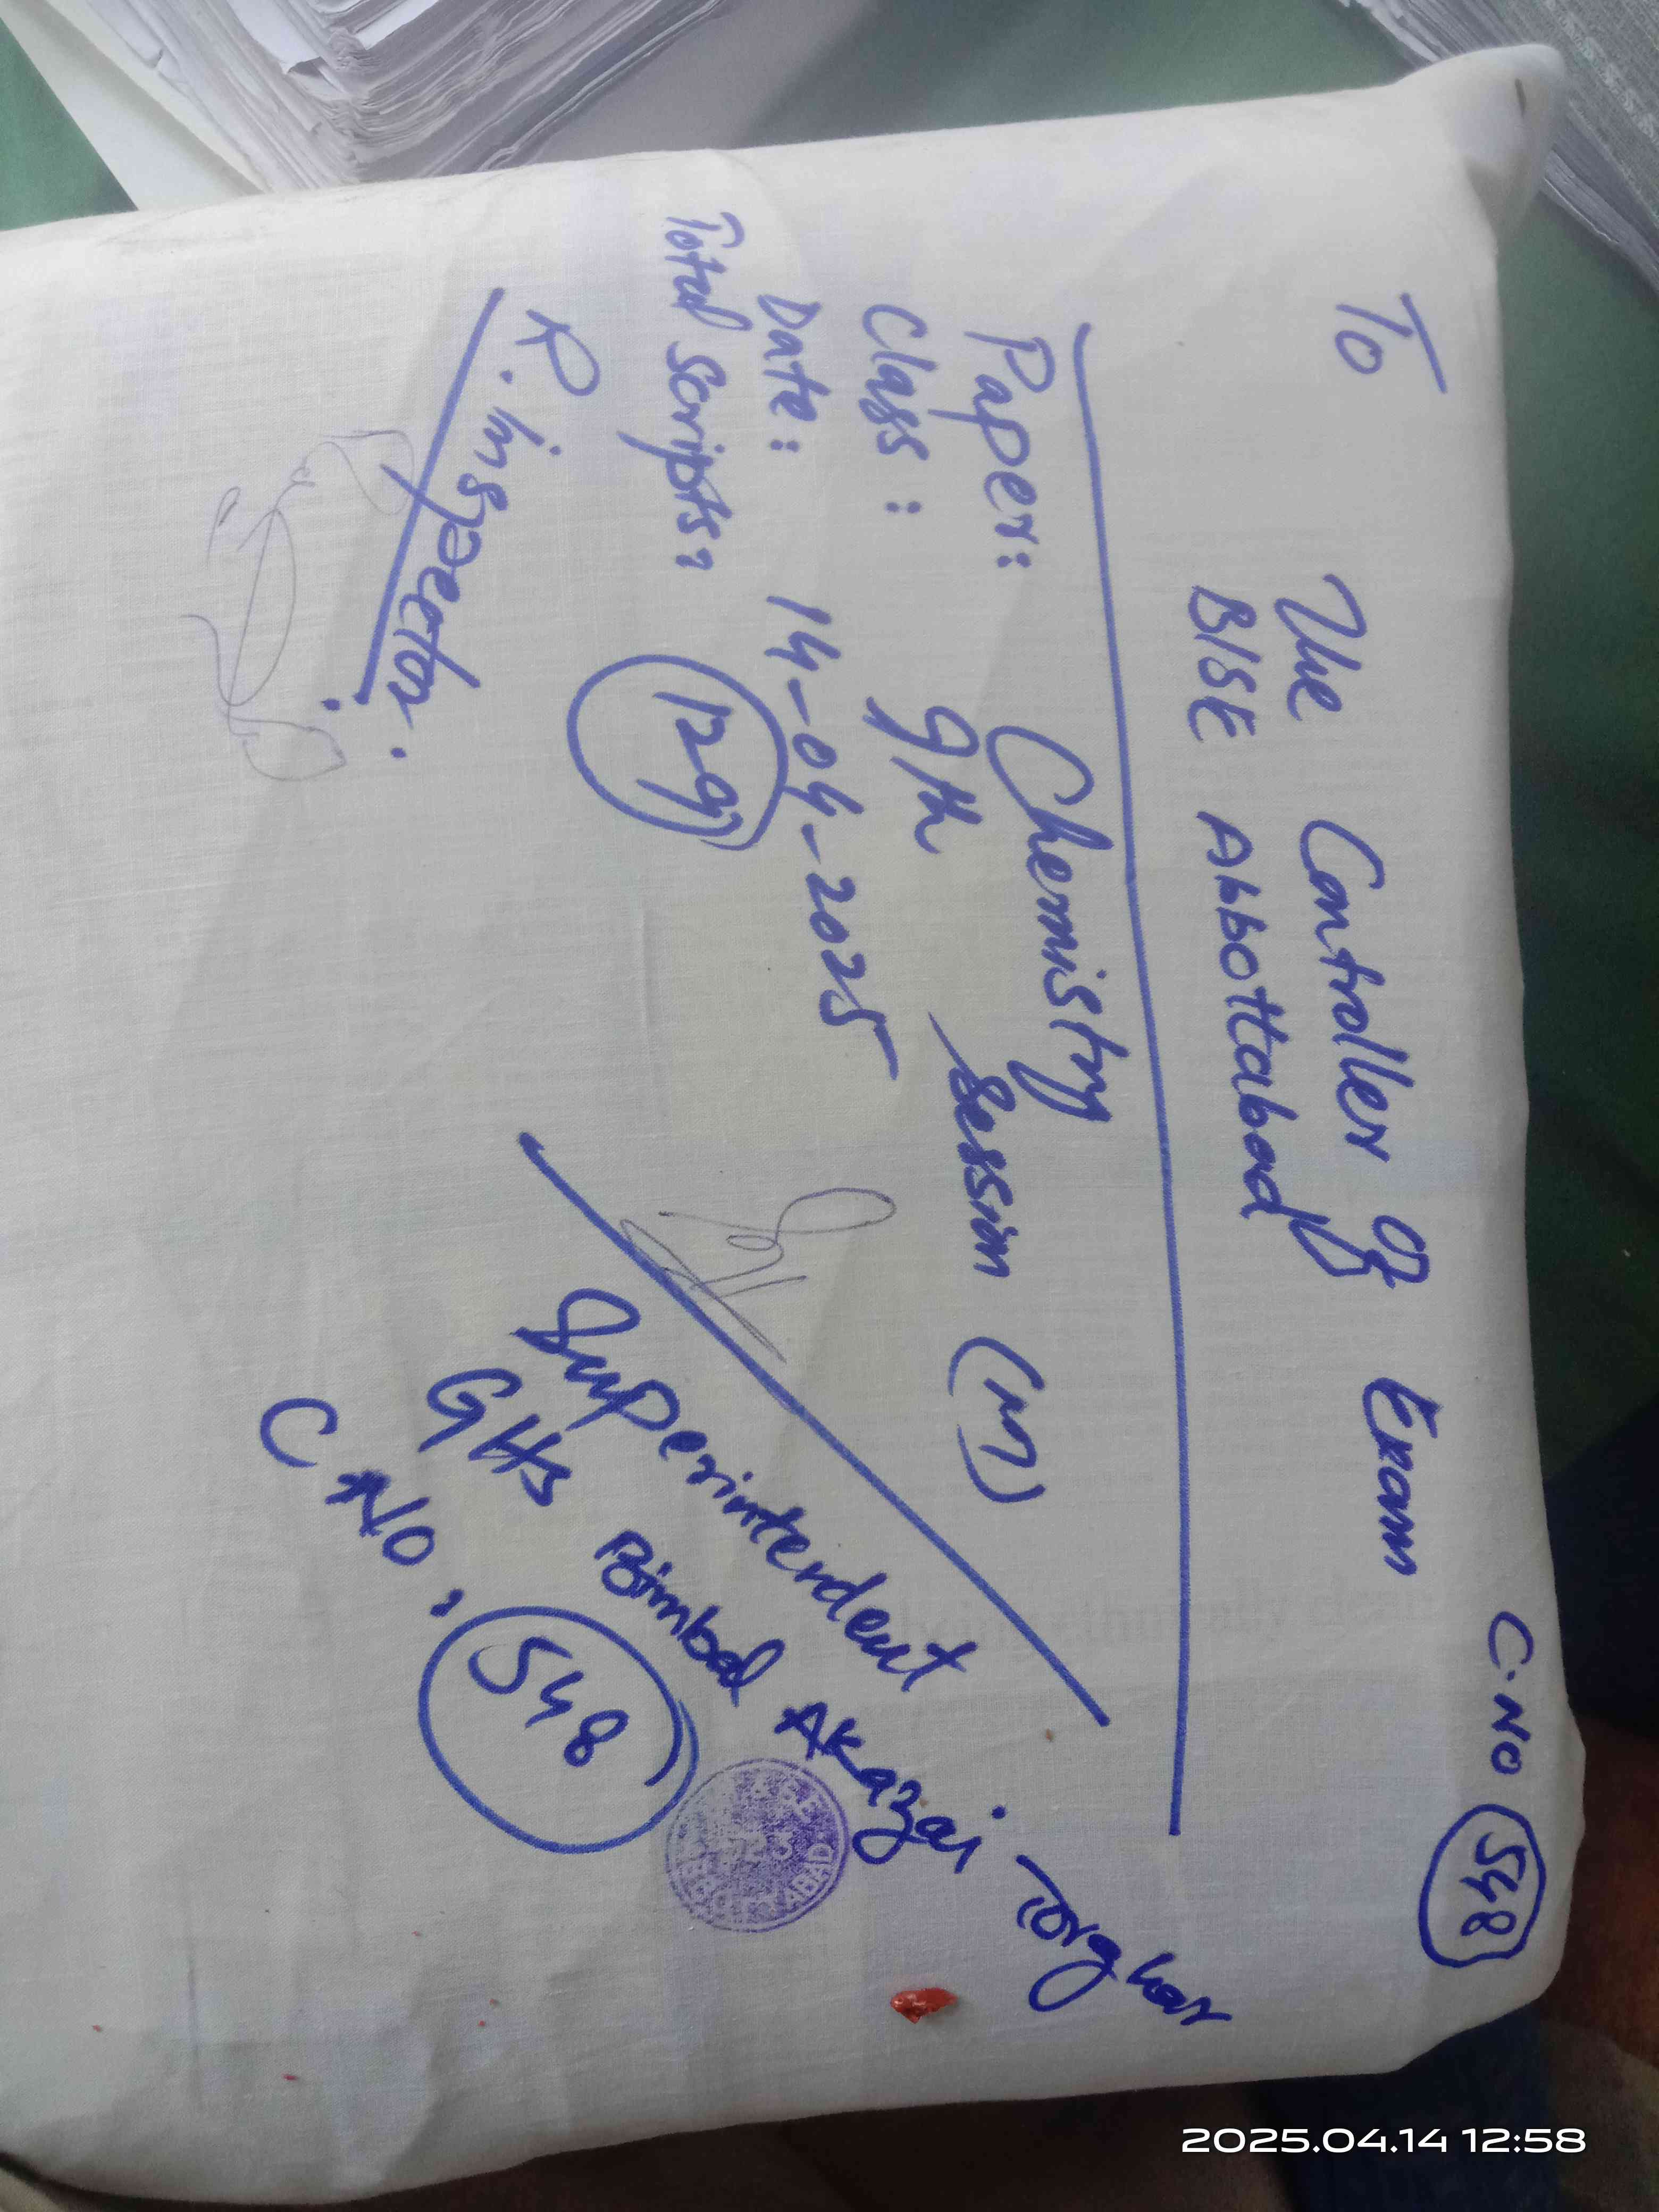 C.NO 548
To
The Controller of Exam
BISE Abbottabad
Paper: Chemistry
Class: 9th Session (M)
Date: 14-04-2025
Total Scripts: 129
R. Inspector.
Superintendent
GHS Bimbal Akazai Torghar
C NO. 548
2025.04.14 12:58